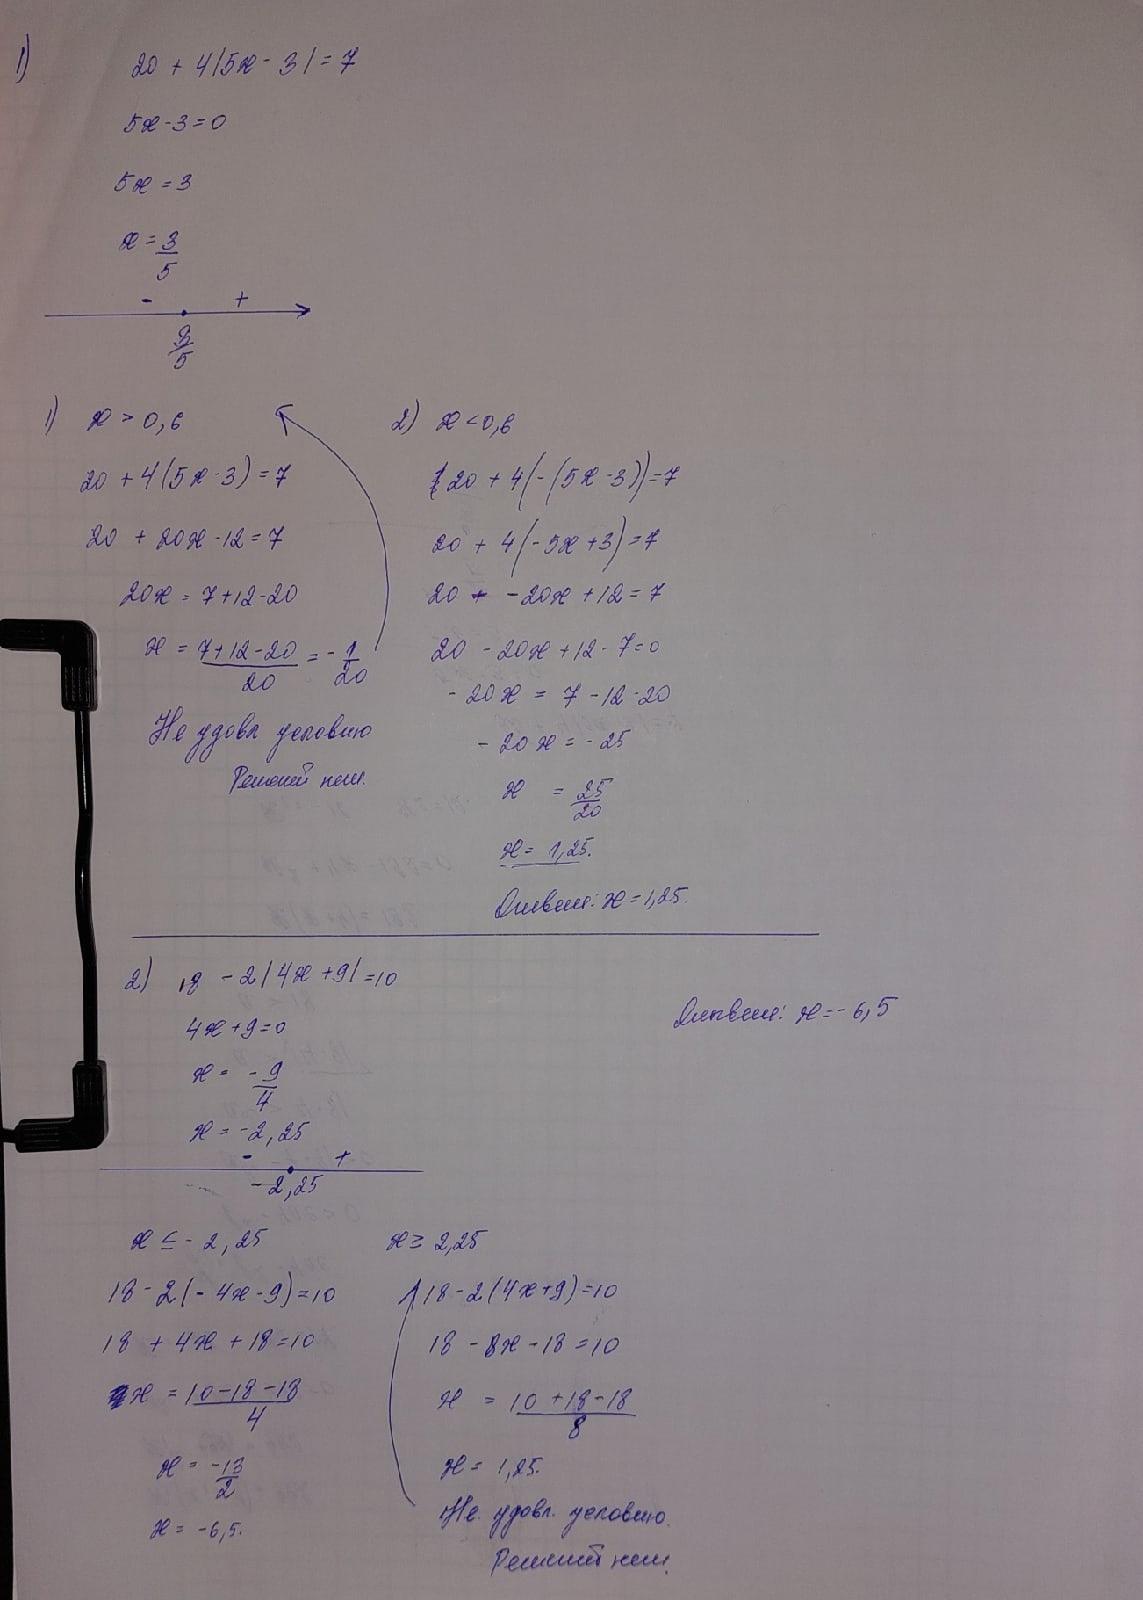 1) 20 + 4|5x - 3| = 7
5x - 3 = 0
5x = 3
x = 3/5
- +
3/5
1) x > 0,6
20 + 4(5x - 3) = 7
20 + 20x - 12 = 7
20x = 7 + 12 - 20
x = (7 + 12 - 20)/20 = -1/20
Не удовл. условию
Решений нет.
2) x < 0,6
20 + 4(-(5x - 3)) = 7
20 + 4(-5x + 3) = 7
20 + -20x + 12 = 7
20 - 20x + 12 - 7 = 0
-20x = 7 - 12 - 20
-20x = -25
x = 25/20
x = 1,25.
Ответ: x = 1,25.
2) 18 - 2|4x + 9| = 10
4x + 9 = 0
x = -9/4
x = -2,25
- +
-2,25
x ≤ -2,25
18 - 2(-4x - 9) = 10
18 + 4x + 18 = 10
x = (10 - 18 - 18)/4
x = -13/2
x = -6,5.
x ≥ 2,25
18 - 2(4x + 9) = 10
18 - 8x - 18 = 10
x = (10 + 18 - 18)/8
x = 1,25.
Не удовл. условию.
Решений нет.
Ответ: x = -6,5